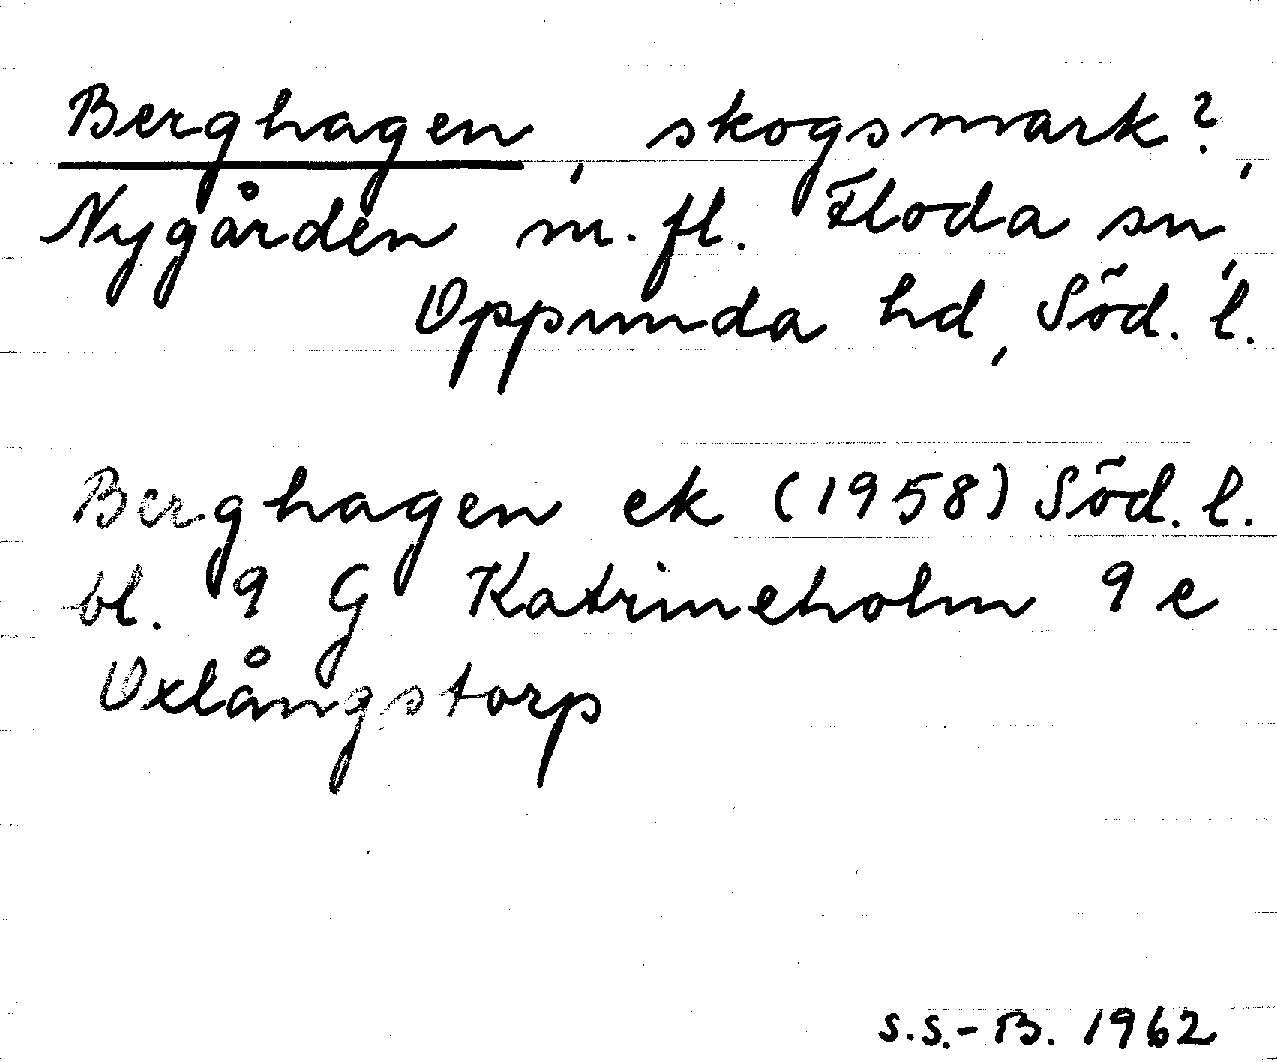 Berghagen, skogsmark?,
Nygården m.fl. Floda sn,
Oppunda hd, Söd. l.
Berghagen ek (1958) Söd. l.
bl. 9 G Katrineholm 9 e
Oxlångstorp
S.S.-B. 1962